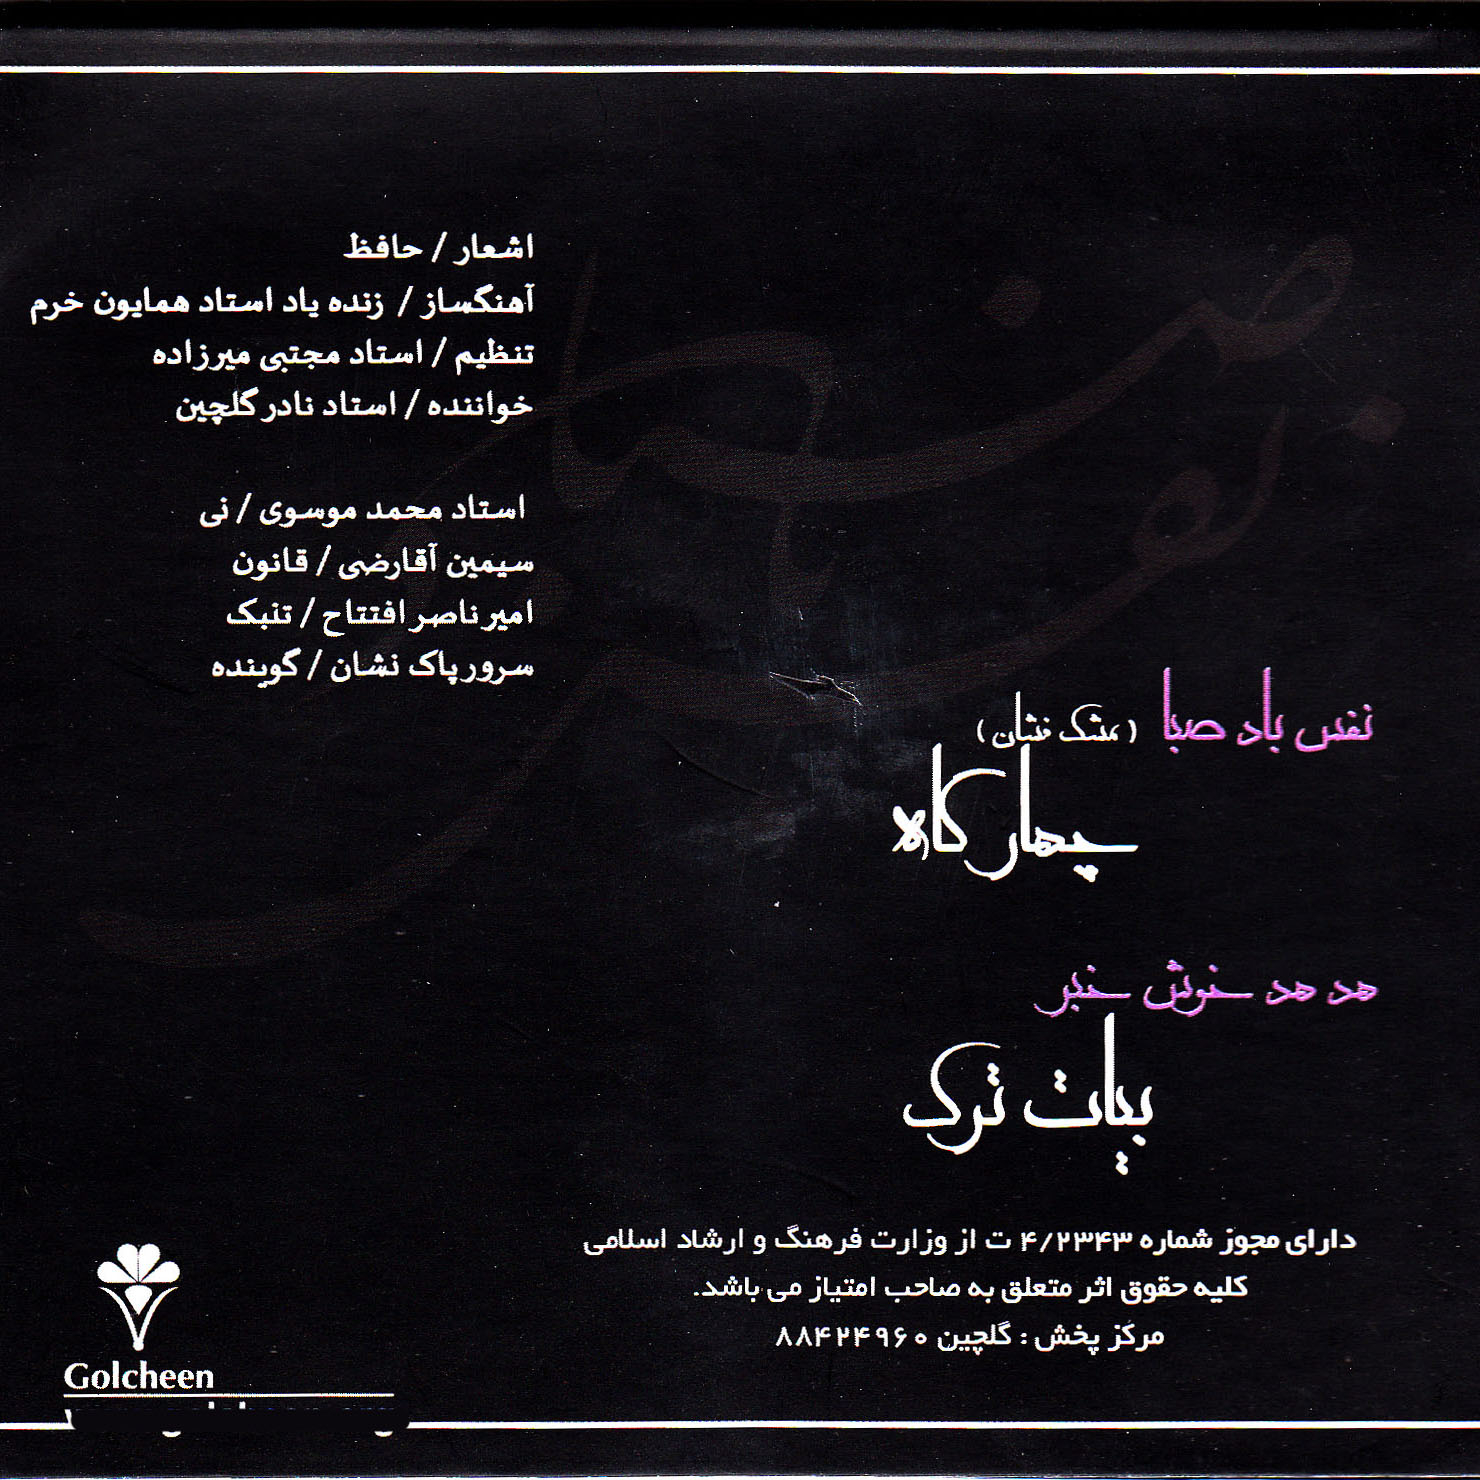 اشعار / حافظ
آهنگساز / زنده یاد استاد همایون خرم
تنظیم / استاد مجتبی میرزاده
خواننده / استاد نادر گلچین
استاد محمد موسوی / نی
سیمین آقارضی / قانون
امیر ناصر افتتاح / تنبک
سرور پاک نشان / گوینده
نفس باد صبا (مشک فشان)
چهار گاه
هد هد خوش خبر
بیات ترک
دارای مجوز شماره ۴/۲۳۴۳ ت از وزارت فرهنگ و ارشاد اسلامی
کلیه حقوق اثر متعلق به صاحب امتیاز می باشد.
مرکز پخش : گلچین ۸۸۴۲۴۹۶۰
Golcheen